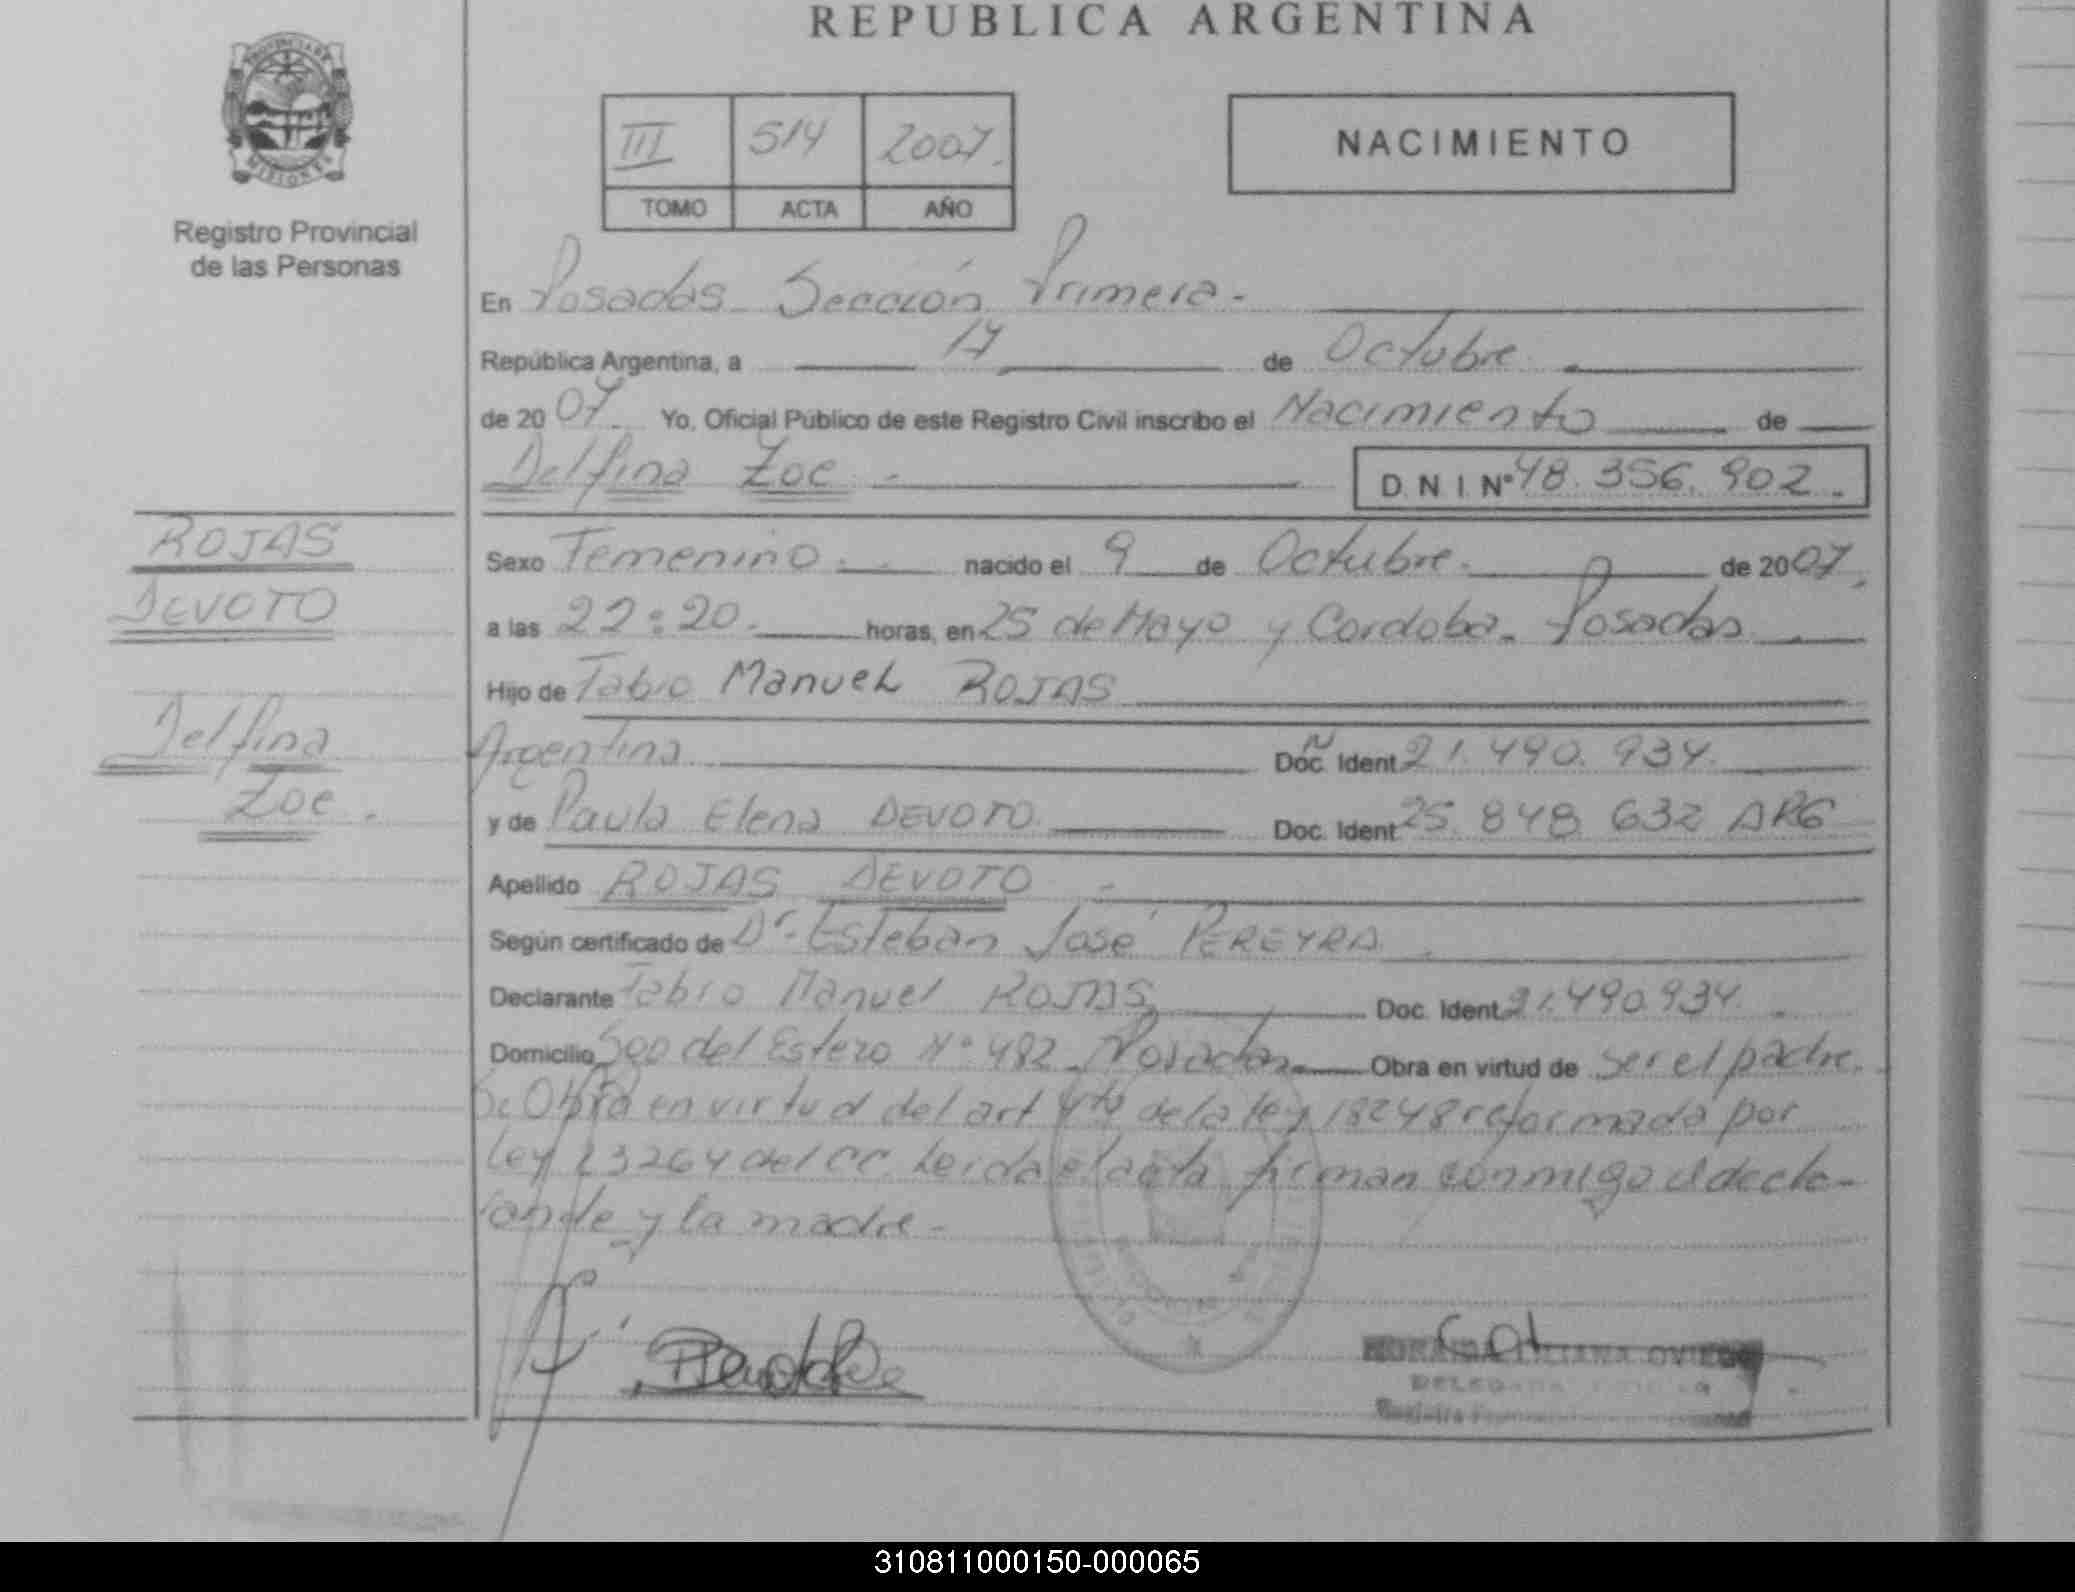 REPUBLICA ARGENTINA
PROVINCIA DE
MISIONES
Registro Provincial
de las Personas
III 514 2007.
TOMO ACTA AÑO
NACIMIENTO
En Posadas Sección Primera.-
República Argentina, a 17 de Octubre
de 2007. Yo, Oficial Público de este Registro Civil inscribo el Nacimiento de
Delfina Zoe .- D.N.I. Nº 48.356.902.
ROJAS
DEVOTO
Delfina
Zoe.
Sexo Femenino.- nacido el 9 de Octubre. de 2007.
a las 22:20. horas, en 25 de Mayo y Cordoba. Posadas.
Hijo de Fabio Manuel ROJAS
Argentina Doc. Ident 21.490.934.
y de Paula Elena DEVOTO Doc. Ident. 25.848.632 ARG
Apellido ROJAS DEVOTO -
Según certificado de Dr. Esteban José PEREYRA.
Declarante Fabio Manuel ROJAS Doc. Ident. 21.490.934.
Domicilio Sgo del Estero Nº 482. Posadas. Obra en virtud de ser el padre.
Se Obra en virtud del art 4to de la ley 18248 reformada por
Ley 23264 del CC. Leida el acta firman conmigo el decla-
rante y la madre.-
LILIANA
DELEGADA
Registro
310811000150-000065